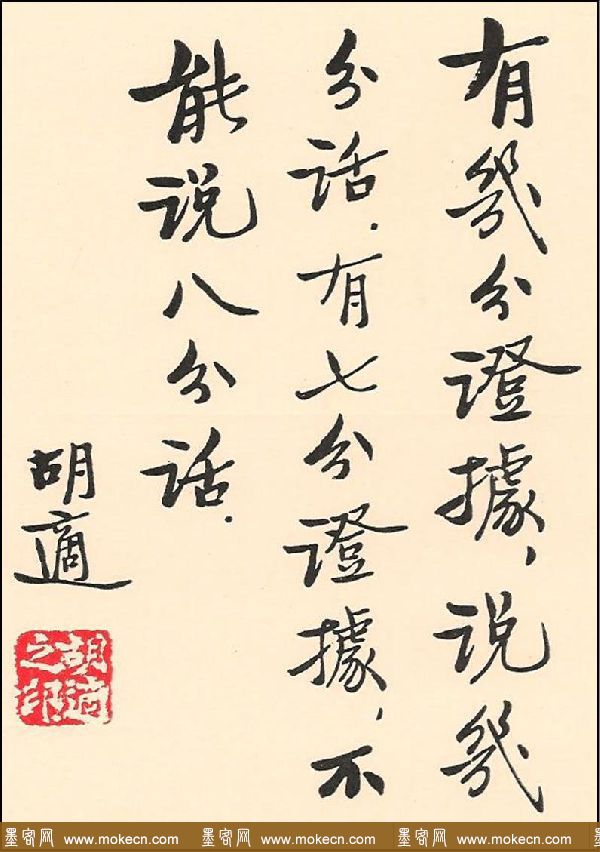 有幾分證據，说幾
分话.有七分證據，不
能说八分话.
胡適
胡適之印
墨客网 www.mokecn.com 墨客网 www.mokecn.com 墨客网 www.mokecn.com